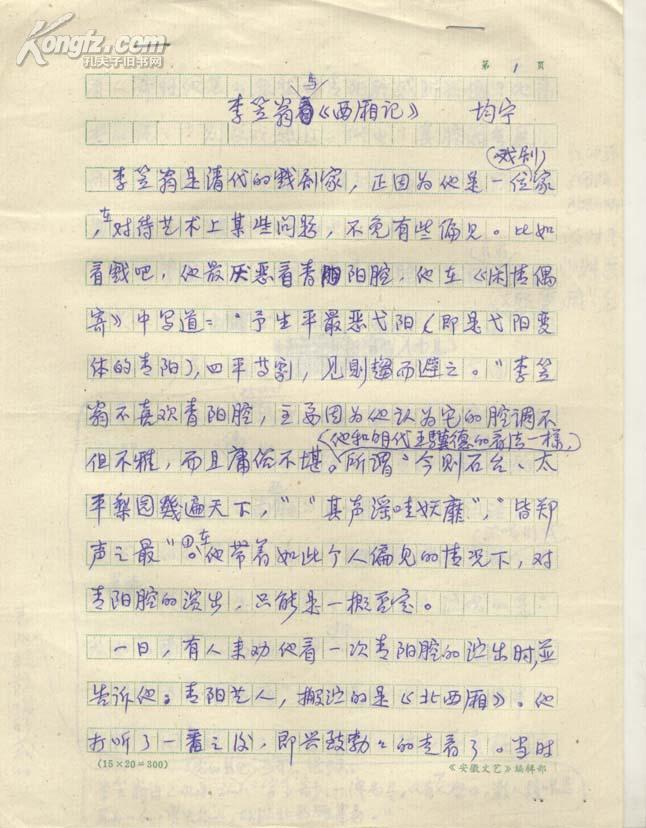 Kongfz.com
孔夫子旧书网
第 1 页
李笠翁与《西厢记》 均宁
(戏剧)
李笠翁是清代的戏剧家，正因为他是一位家
，在对待艺术上某些问题，不免有些偏见。比如
看戏吧，他最厌恶看青阳腔，他在《闲情偶
寄》中写道：“予生平最恶弋阳（即是弋阳变
体的青阳），四平等剧，见则趋而避之。”李笠
翁不喜欢青阳腔，主要因为他认为它的腔调不
（他和明代王骥德的看法一样，
但不雅，而且庸俗不堪。所谓“今则石台、太
平梨园几遍天下，”“其声淫哇妖靡”，“皆郑
声之最”①。在他带着如此个人偏见的情况下，对
青阳腔的演出，只能是一概否定。
一日，有人来劝他看一次青阳腔的演出时，并
告诉他：青阳艺人，搬演的是《北西厢》。他
打听了一番之后，即兴致勃々的走看了。当时
(15×20=300) 《安徽文艺》编辑部